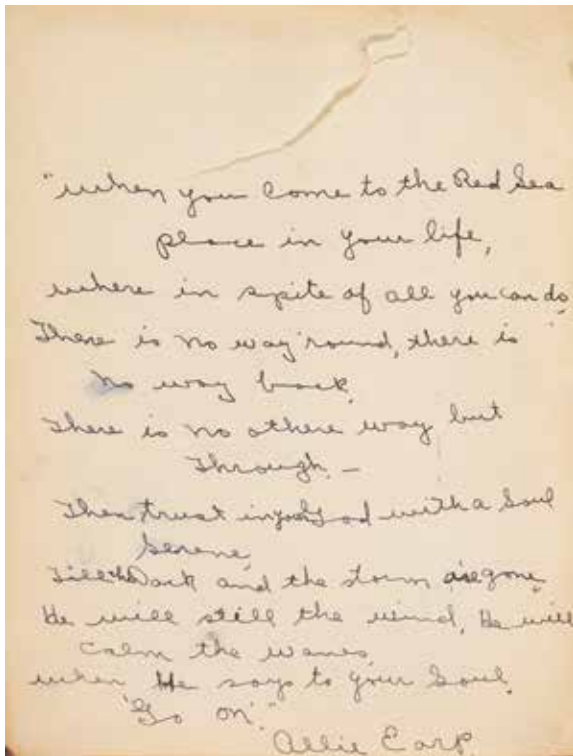 "When you come to the Red Sea
place in your life,
where in spite of all you can do,
There is no way 'round, there is
no way back,
There is no othere way but
Through —
Then trust in your God with a Soul
Serene,
Till the Dark and the storm are gone,
He will still the wind, He will
calm the waves,
when He says to your Soul,
'Go on'."
Allie Earp.